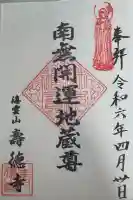 奉拝
令和六年四月廿日
南無開運地蔵尊
寿徳寺